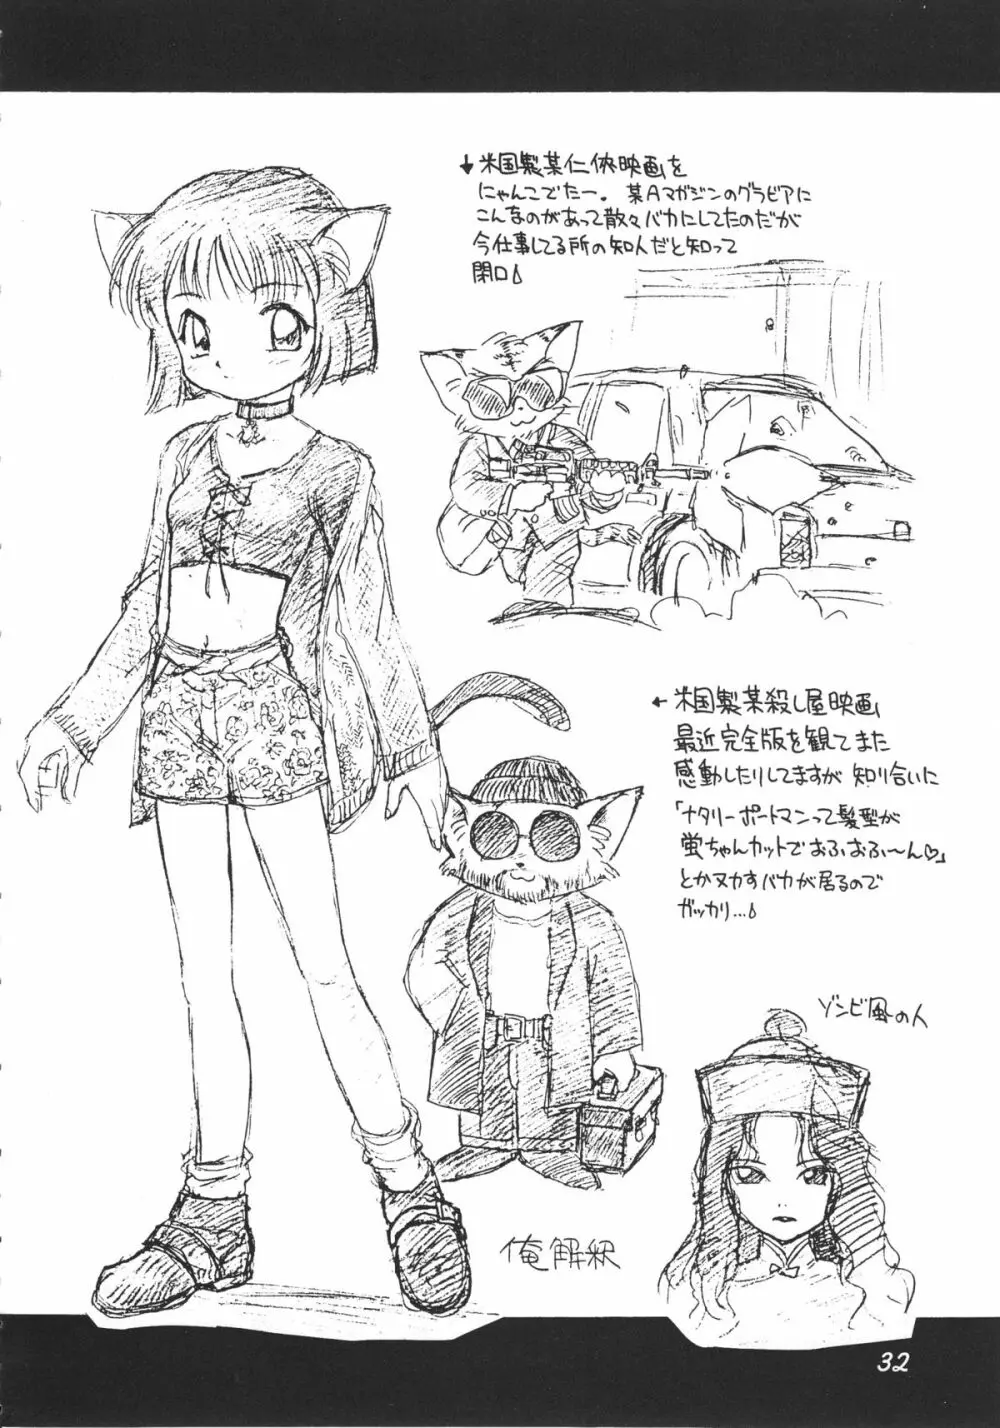 ↓米国製某仁侠映画を
にゃんこでたー。某Aマガジンのグラビアに
こんなのがあって散々バカにしてたのだが
今仕事してる所の知人だと知って
閉口
←米国製某殺し屋映画
最近完全版を観てまた
感動したりしてますが 知り合いに
「ナタリーポートマンって髪型が
蛍ちゃんカットでおふおふ〜ん♡」
とかヌカすバカが居るので
ガッカリ…
ゾンビ風の人
俺解釈
32